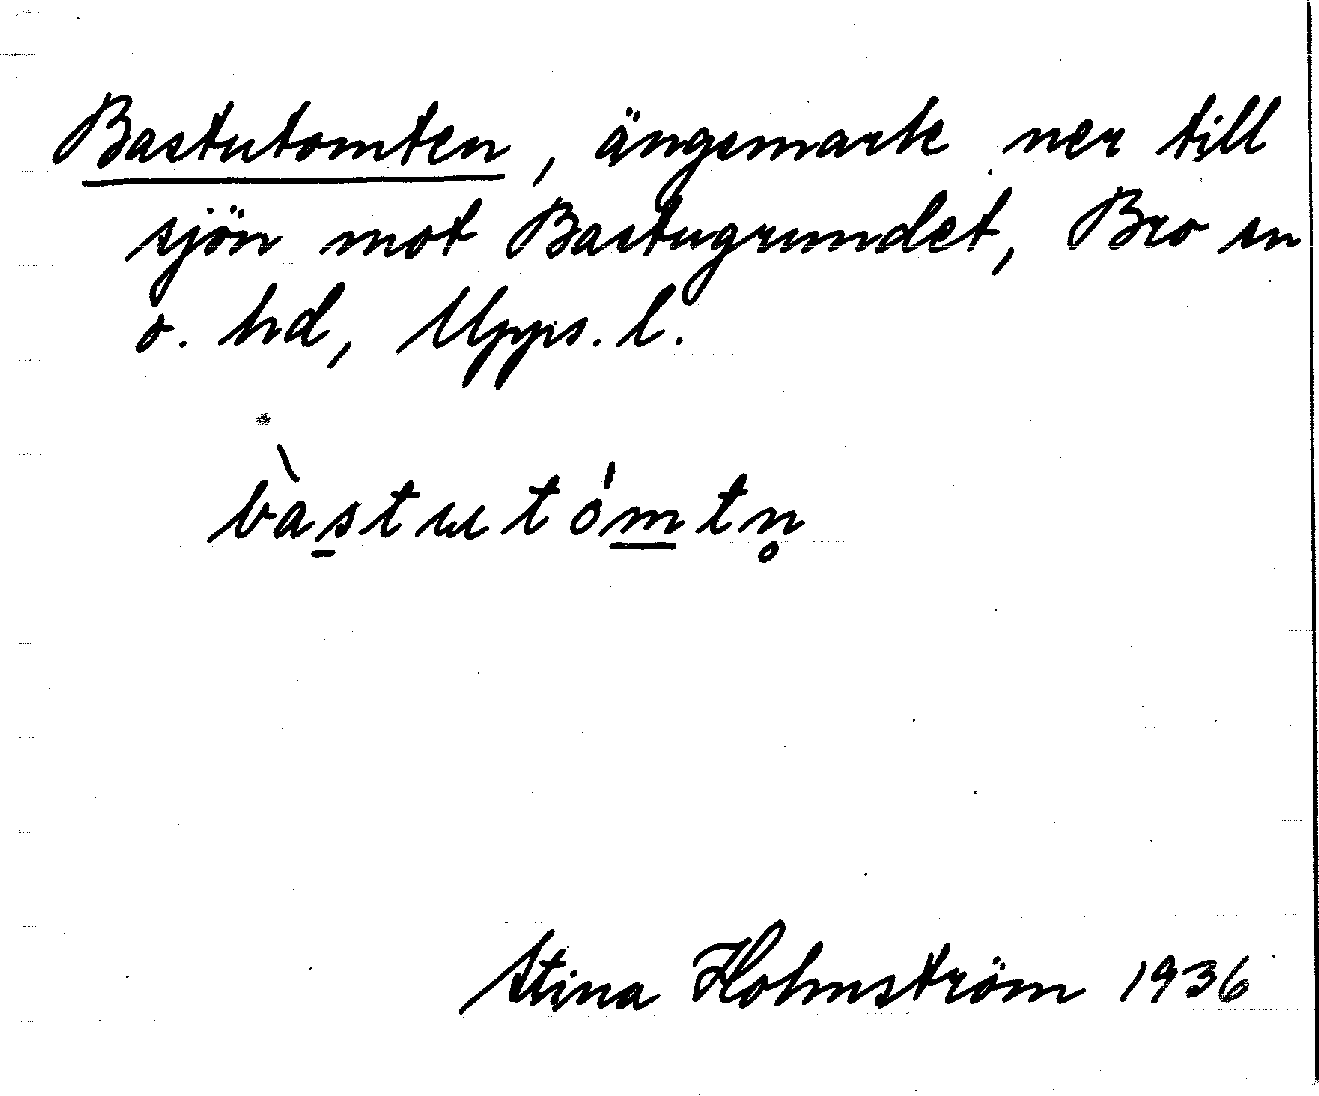 Bastutomten, ängsmark ner till
sjön mot Bastugrundet, Bro sn
o. hd, Upps. l.
bàs̲tutóm̲tn̥
Stina Holmström 1936